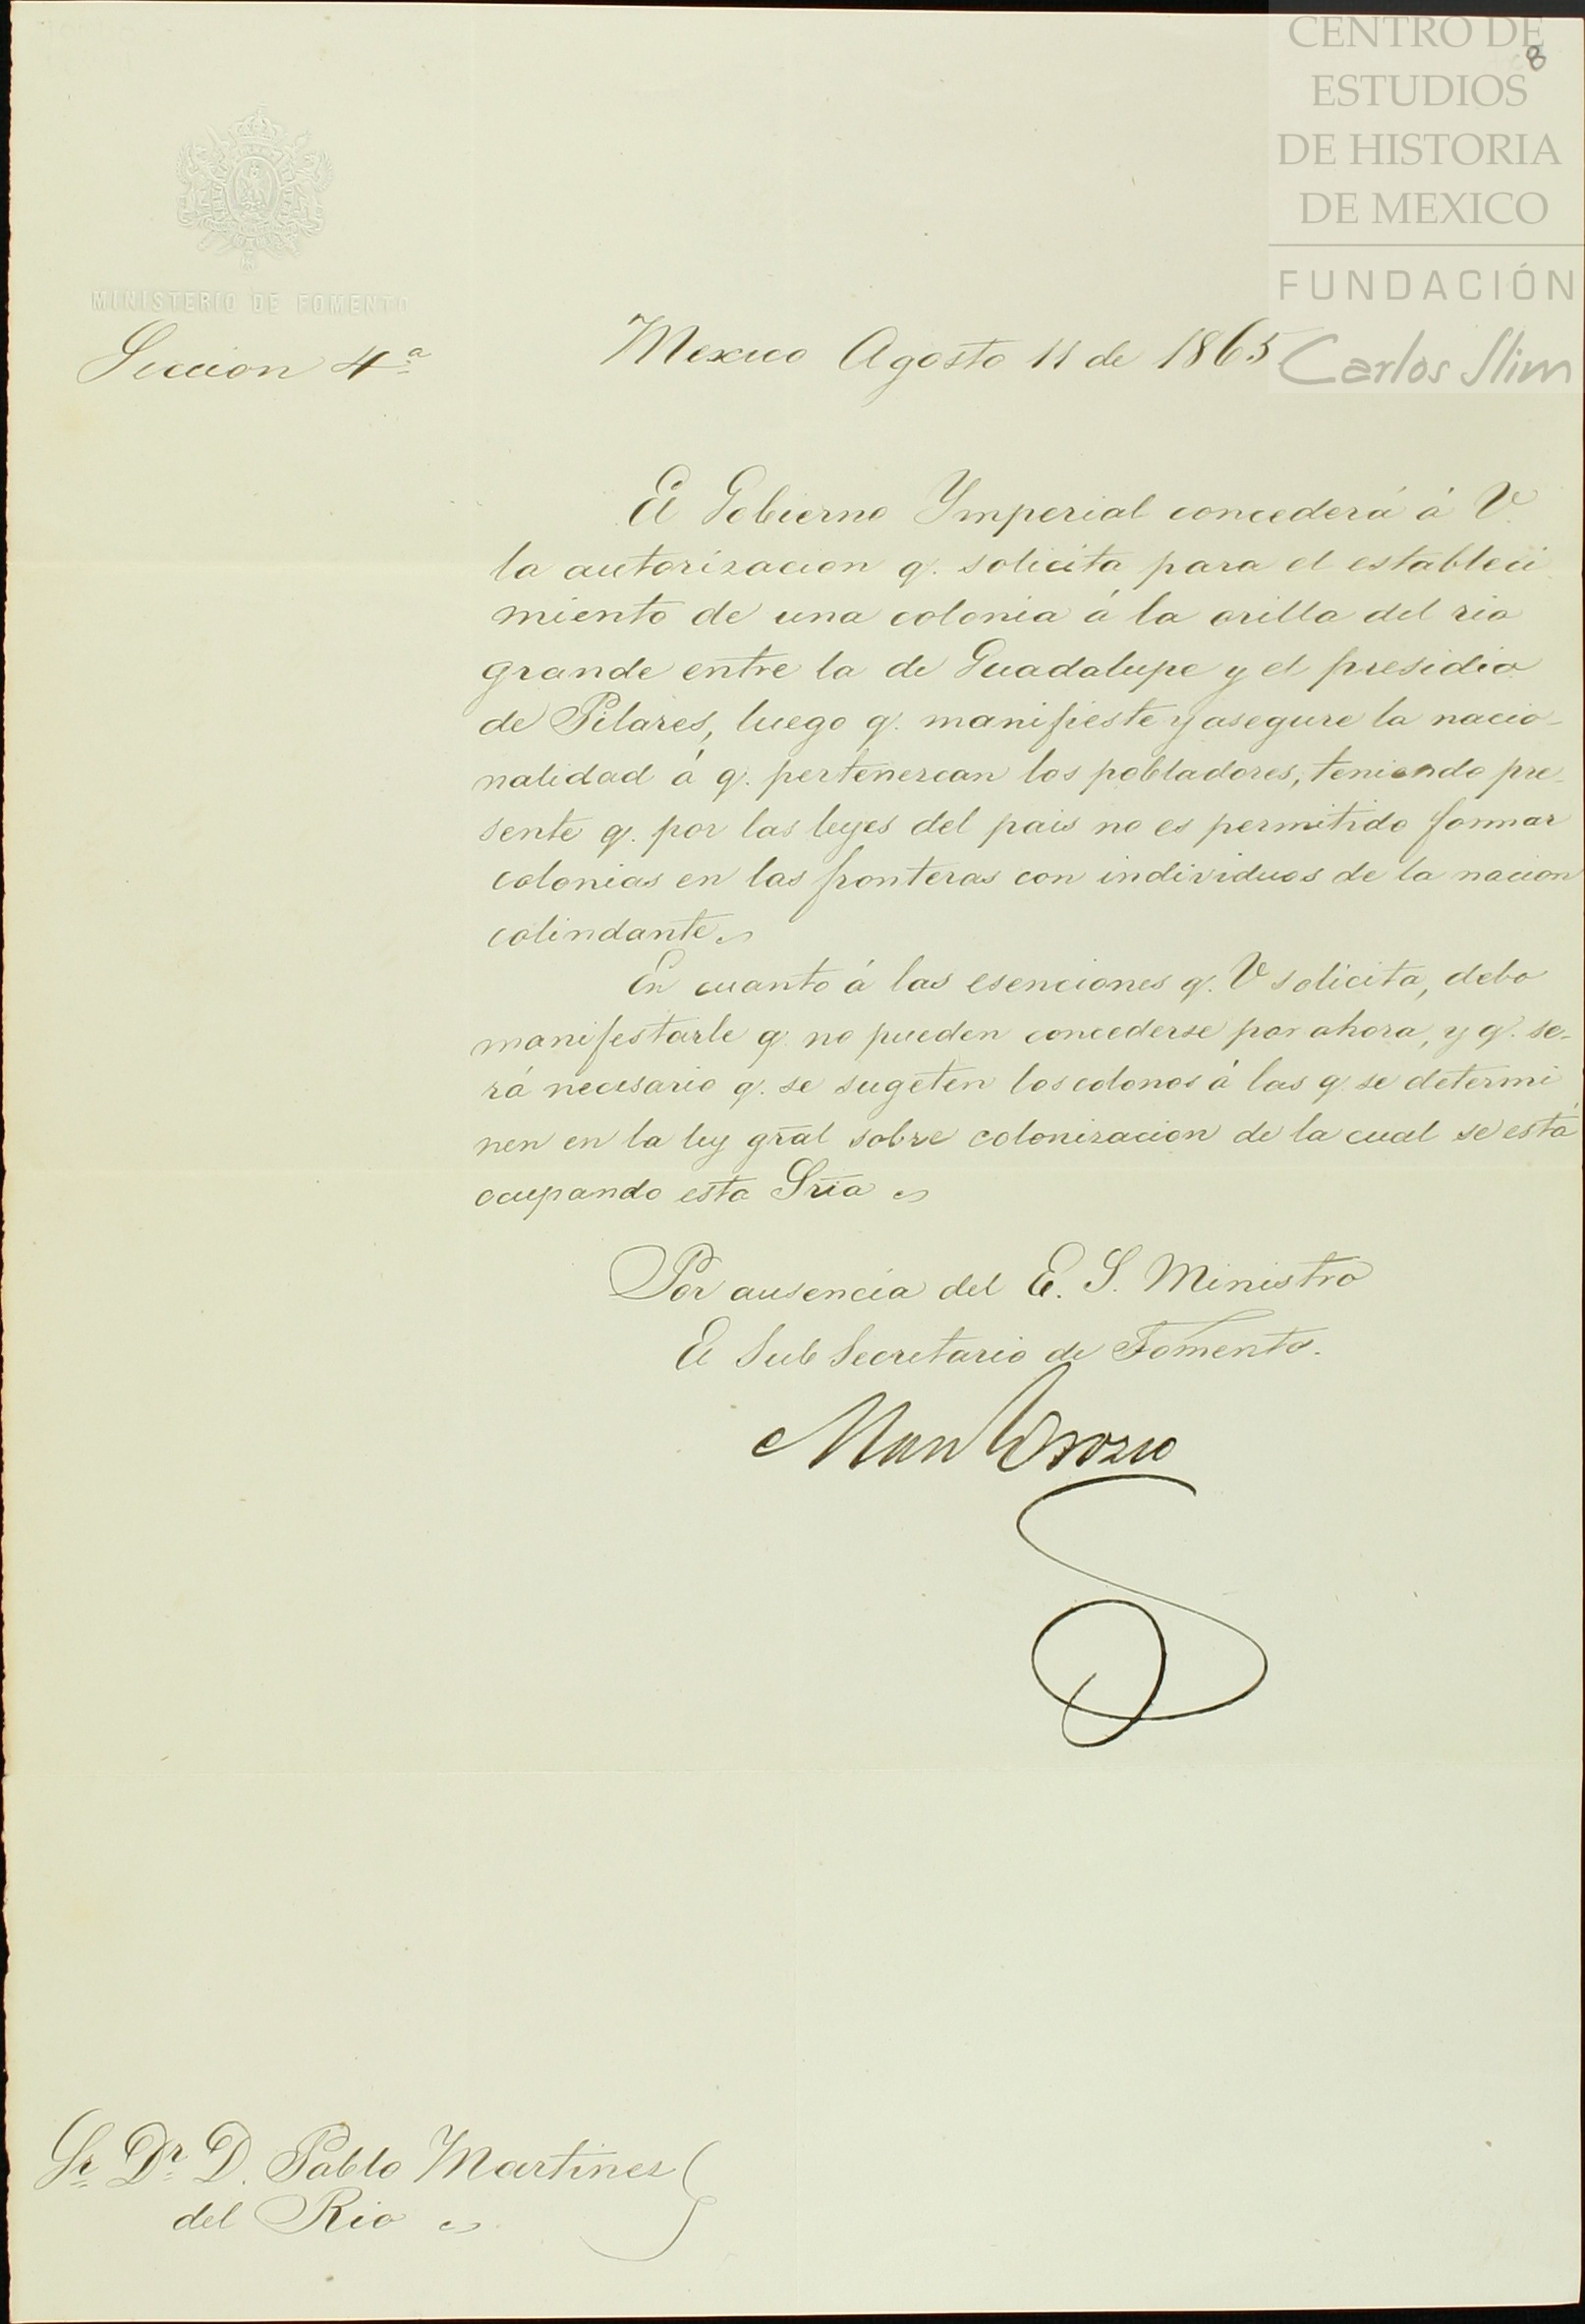 CENTRO DE
ESTUDIOS
DE HISTORIA
DE MEXICO
FUNDACIÓN
Carlos Slim
8
MINISTERIO DE FOMENTO
Seccion 4ª
Mexico Agosto 11 de 1865
El Gobierno Ymperial concederá á V.
la autorizacion q. solicita para el estableci
miento de una colonia á la orilla del rio
grande entre la de Guadalupe y el presidio
de Pilares, luego q. manifieste y asegure la nacio-
nalidad á q. pertenezcan los pobladores, teniendo pre-
sente q. por las leyes del pais no es permitido formar
colonias en las fronteras con individuos de la nacion
colindante.
En cuanto á las esenciones q. V solicita, debo
manifestarle q. no pueden concederse por ahora, y q. se-
rá necesario q. se sugeten los colonos á las q. se determi
nen en la ley gral sobre colonizacion de la cual se está
ocupando esta Sria
Por ausencia del E. S. Ministro
El Sub Secretario de Fomento.
Man Orozco
Sr. Dr. D. Pablo Martinez
del Rio